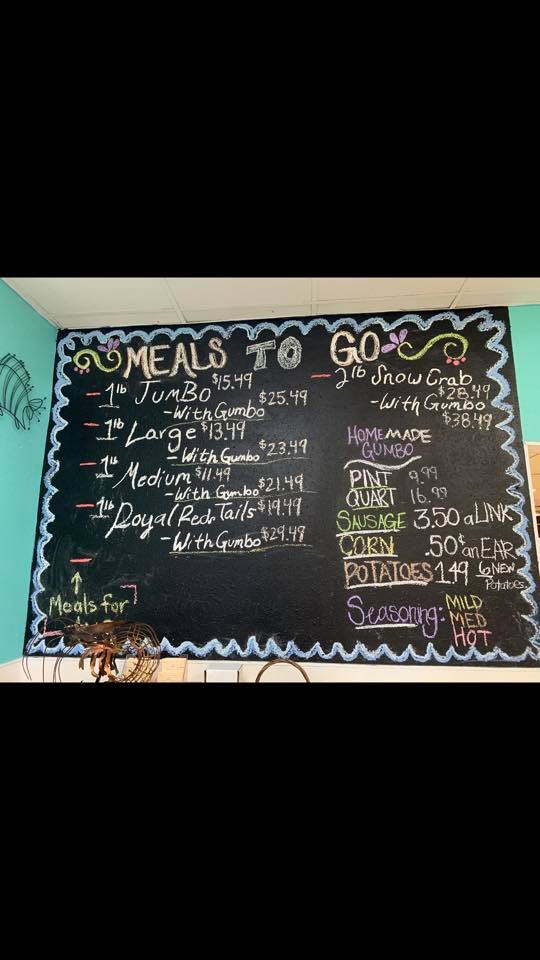 MEALS TO GO
1lb JUMBO $15.49
- With Gumbo $25.49
1lb Large $13.49
- With Gumbo $23.49
1lb Medium $11.49
- With Gumbo $21.49
1lb Royal Red Tails $19.49
- With Gumbo $29.49
Meals for
2lb Snow Crab
$28.49
- With Gumbo
$38.49
HOMEMADE
GUMBO
PINT 9.99
QUART 16.99
SAUSAGE 3.50 a LINK
CORN .50¢ an EAR
POTATOES 1.49 6 NEW
Potatoes
Seasoning: MILD
MED
HOT